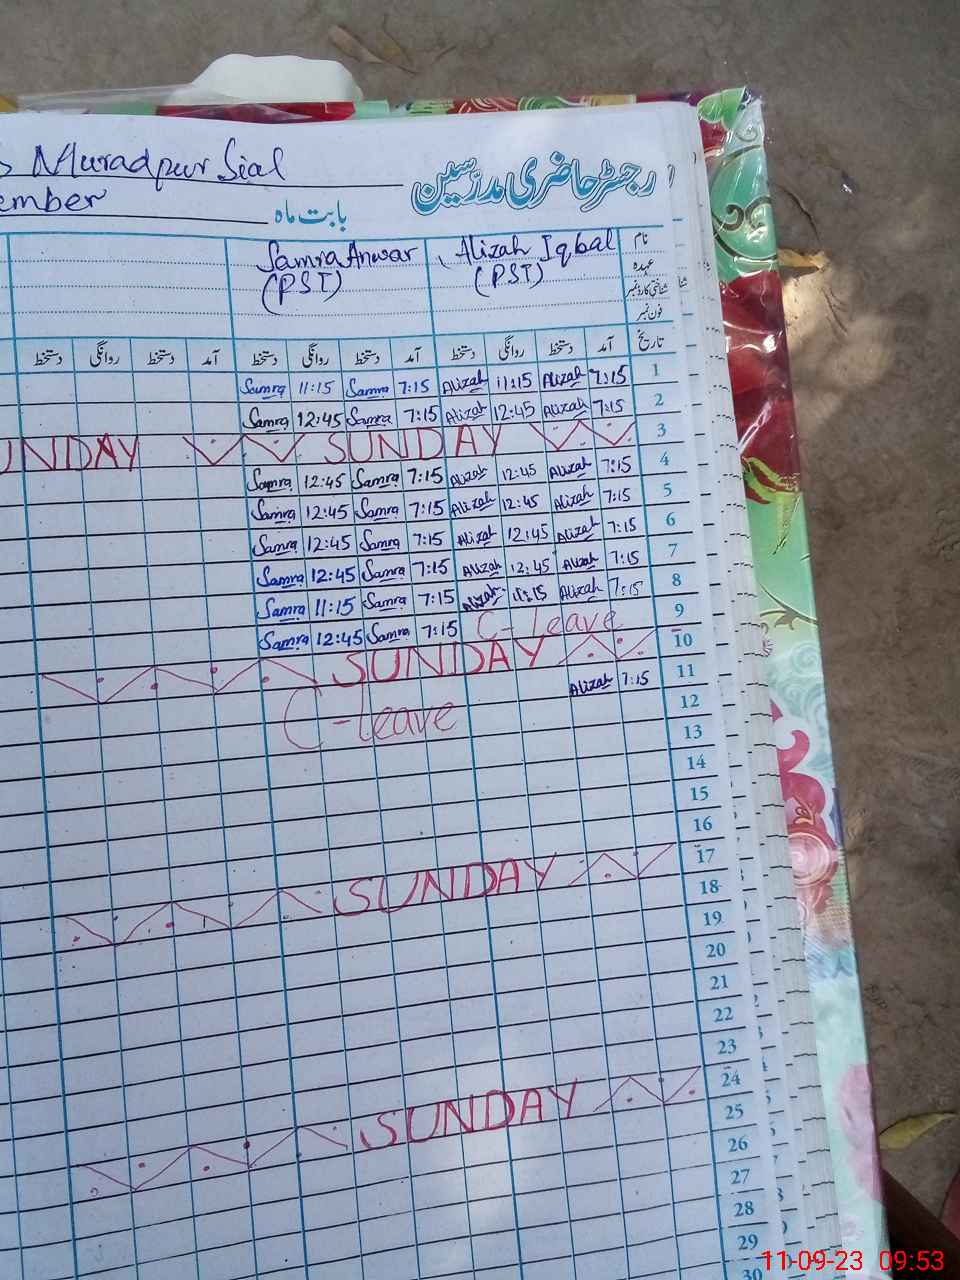 Muradpur Sial
رجسٹر حاضری مدرسین
ember بابت ماہ
Samra Anwar Alizah Iqbal نام
(PST) (PST) عہدہ
شناختی کارڈ نمبر
فون نمبر
دستخط روانگی دستخط آمد دستخط روانگی دستخط آمد دستخط روانگی دستخط آمد تاریخ
Samra 11:15 Samra 7:15 Alizah 11:15 Alizah 7:15 1
Samra 12:45 Samra 7:15 Alizah 12:45 Alizah 7:15 2
UNDAY SUNDAY 3
Samra 12:45 Samra 7:15 Alizah 12:45 Alizah 7:15 4
Samra 12:45 Samra 7:15 Alizah 12:45 Alizah 7:15 5
Samra 12:45 Samra 7:15 Alizah 12:45 Alizah 7:15 6
Samra 12:45 Samra 7:15 Alizah 12:45 Alizah 7:15 7
Samra 11:15 Samra 7:15 Alizah 11:15 Alizah 7:15 8
Samra 12:45 Samra 7:15 C-leave 9
SUNDAY 10
C-leave Alizah 7:15 11
12
13
14
15
16
SUNDAY 17
18
19
20
21
22
23
SUNDAY 24
25
26
27
28
29
30
11-09-23 09:53